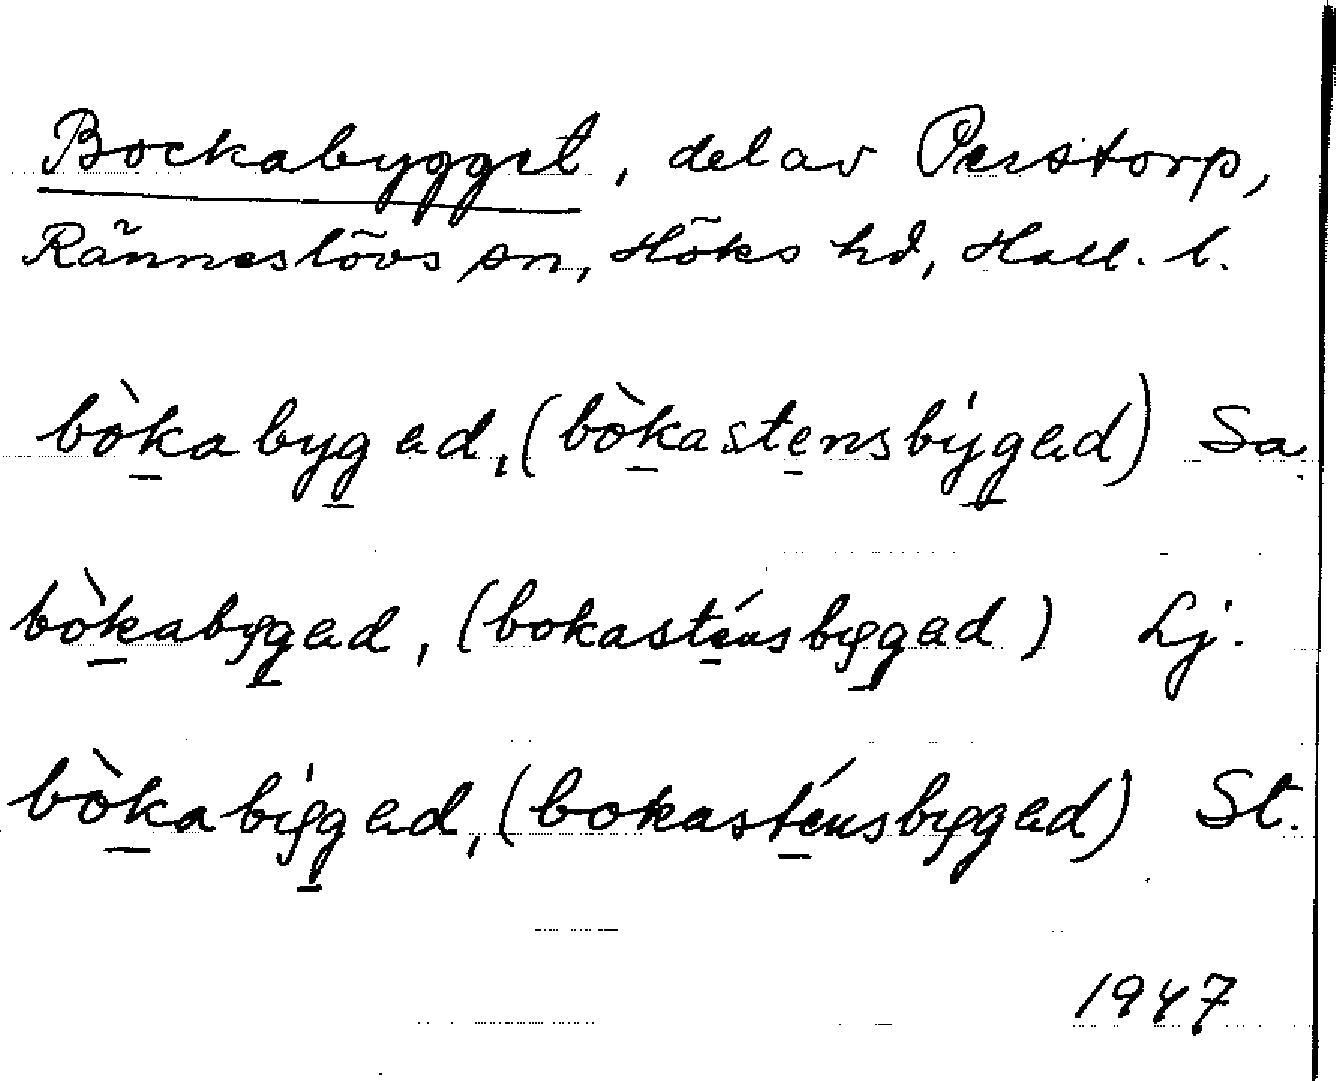 Bockabygget, del av Perstorp,
Ränneslövs sn, Höks hd, Hall. l.
bòkabygad, (bòkastensbýgad) Sa.
bòkabygad, (bokasténsbygad) Lj.
bòkabýgad, (bokasténsbygad) St.
1947